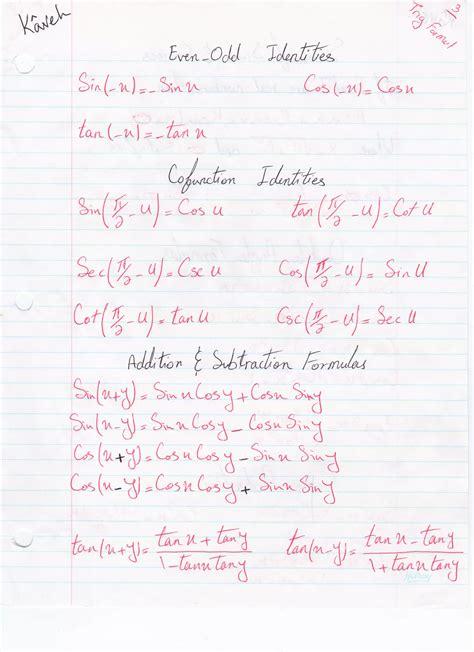 Kaveh
Trig Formul 1/3
Even-Odd Identities
Sin(-u)=-Sin u    Cos(-u)=Cos u
tan(-u)=-tan u
Cofunction Identities
Sin(π/2-u)=Cos u    tan(π/2-u)=Cot u
Sec(π/2-u)=Csc u    Cos(π/2-u)=Sin u
Cot(π/2-u)=tan u    Csc(π/2-u)=Sec u
Addition & Subtraction Formulas
Sin(u+y)=Sin u Cos y+Cos u Sin y
Sin(u-y)=Sin u Cos y-Cos u Sin y
Cos(u+y)=Cos u Cos y-Sin u Sin y
Cos(u-y)=Cos u Cos y+Sin u Sin y
tan(u+y)=(tan u+tan y)/(1-tan u tan y)    tan(u-y)=(tan u-tan y)/(1+tan u tan y)